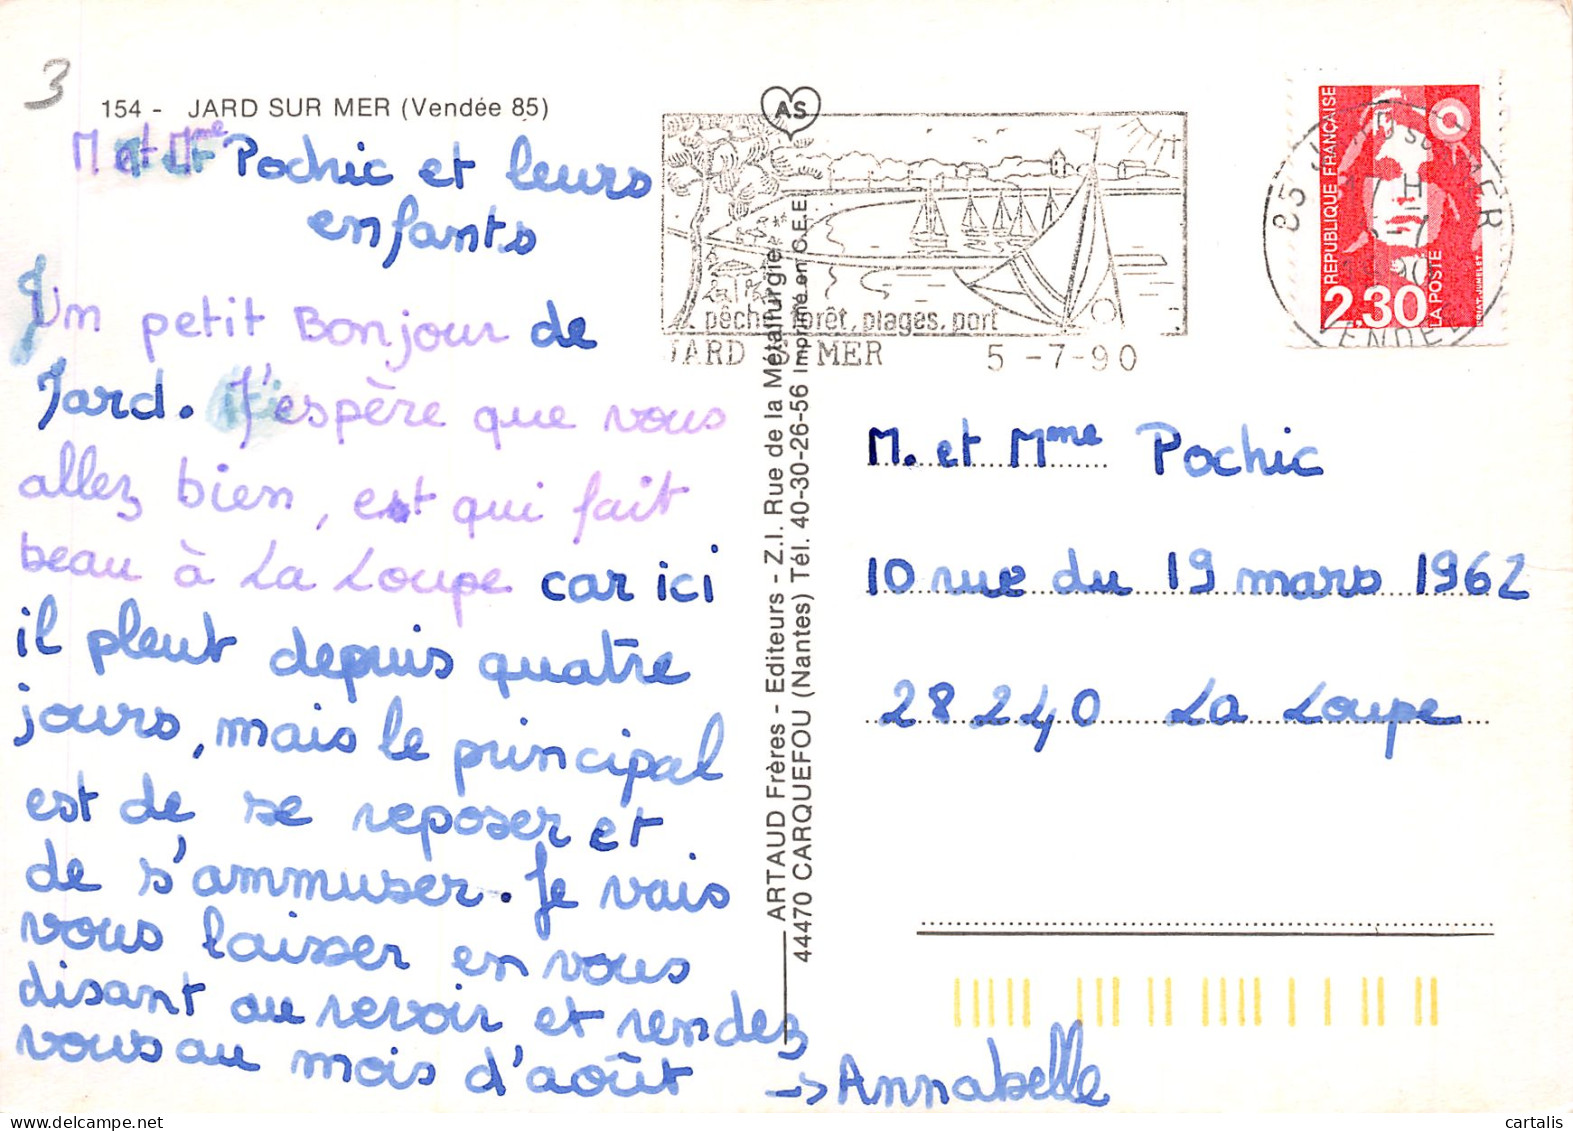 3
154 - JARD SUR MER (Vendée 85)
M et Mme Pochic et leurs
enfants
Un petit Bonjour de
Jard. J'espère que vous
allez bien, est qui fait
beau à La Loupe car ici
il pleut depuis quatre
jours, mais le principal
est de se reposer et
de s'ammuser. Je vais
vous laisser en vous
disant au revoir et rendez
vous au mois d'août
-> Annabelle
AS
pêche, forêt, plages, port
JARD S MER 5 -7-90
ARTAUD Frères - Editeurs - Z.I. Rue de la Métallurgie
44470 CARQUEFOU (Nantes) Tél. 40-30-26-56 Imprimé en C.E.E.
REPUBLIQUE FRANÇAISE
2,30
LA POSTE
85 MER
17 H
M. et Mme Pochic
10 rue du 19 mars 1962
28240 La Loupe
cartalis - delcampe.net